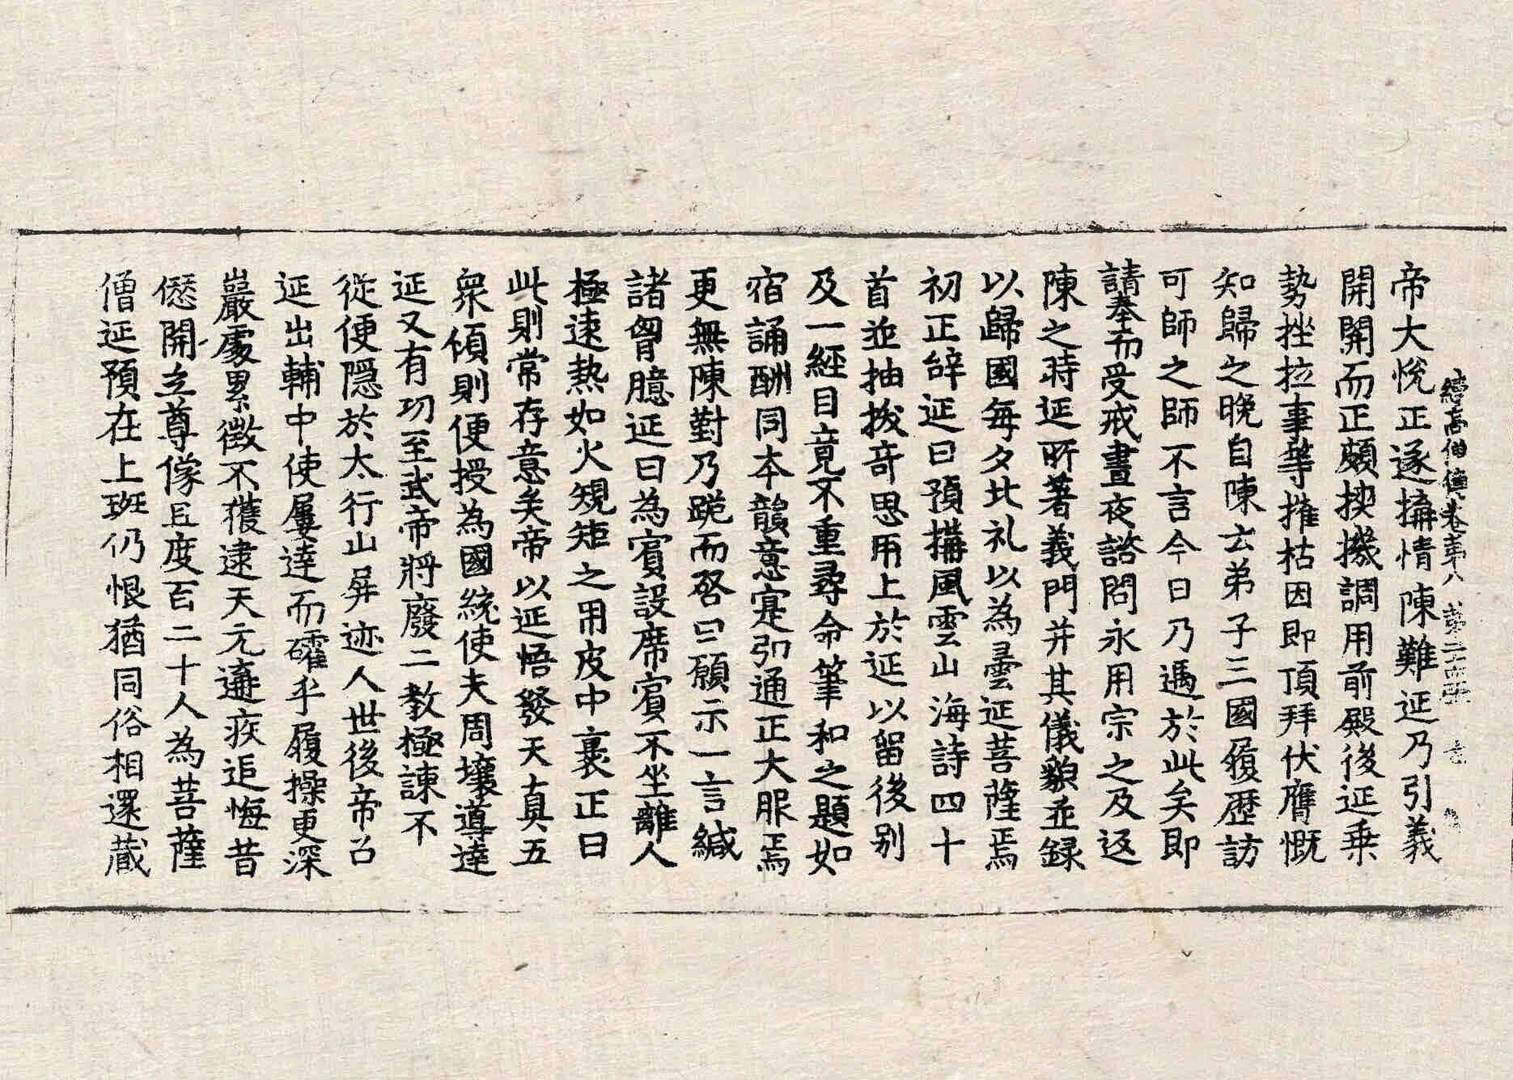 續高僧傳卷第八 第二十四張
帝大悅正遂搆情陳難延乃引義
開關而正頗挾機調用前殿後延乗
勢挫拉事等摧枯因即頂拜伏膺慨
知歸之晚自陳云弟子三國履歷訪
可師之師不言今日乃遇於此矣即
請奉而受戒晝夜諮問永用宗之及返
陳之時延所著義門并其儀貌並録
以歸國每夕北礼以為曇延菩薩焉
初正辭延曰預搆風雲山海詩四十
首並抽拔奇思用上於延以留後别
及一經目竟不重尋命筆和之題如
宿誦酬同本韻意寔弘通正大服焉
更無陳對乃跪而啓曰願示一言緘
諸胷臆延曰為賔設席賔不坐離人
極遠熱如火規矩之用皮中裹正曰
此則常存意矣帝以延悟發天真五
衆傾則便授為國統使夫周壤導達
延又有功至武帝將廢二教極諫不
從便隱於太行山屏迹人世後帝召
延出輔中使屢達而確乎履操更深
巖處累徴不獲逮天元遘疾追悔昔
愆開立尊像且度百二十人為菩薩
僧延預在上班仍恨猶同俗相還藏